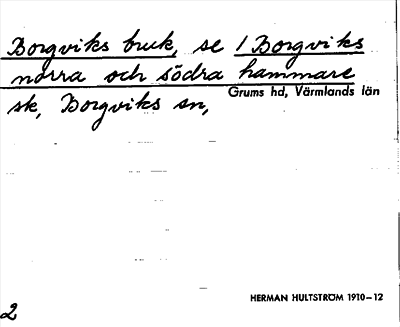 Borgviks bruk, se 1 Borgviks
norra och södra hammare
sk, Borgviks sn,
Grums hd, Värmlands län
HERMAN HULTSTRÖM 1910–12
2